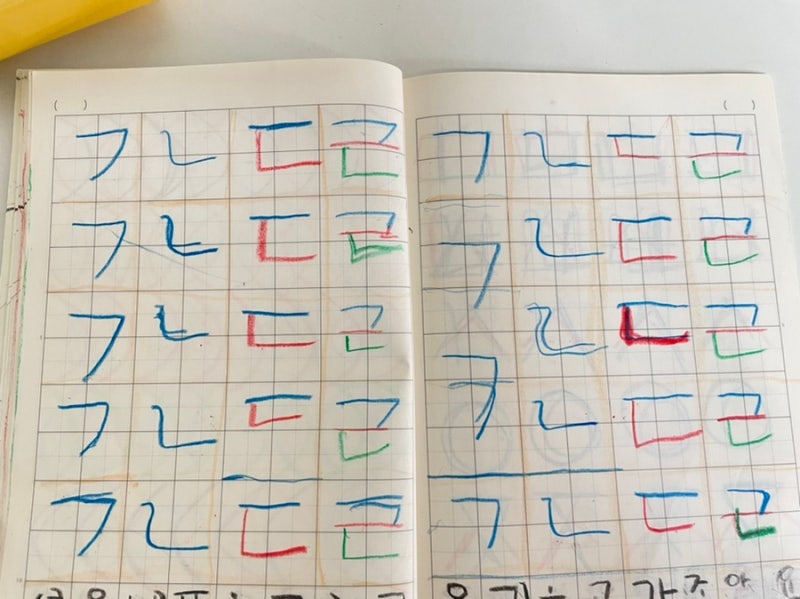 ( )
ㄱ ㄴ ㄷ ㄹ
ㄱ ㄴ ㄷ ㄹ
ㄱ ㄴ ㄷ ㄹ
ㄱ ㄴ ㄷ ㄹ
ㄱ ㄴ ㄷ ㄹ
( )
ㄱ ㄴ ㄷ ㄹ
ㄱ ㄴ ㄷ ㄹ
ㄴ ㄷ ㄹ
ㅋ ㄴ ㄷ ㄹ
ㄱ ㄴ ㄷ ㄹ